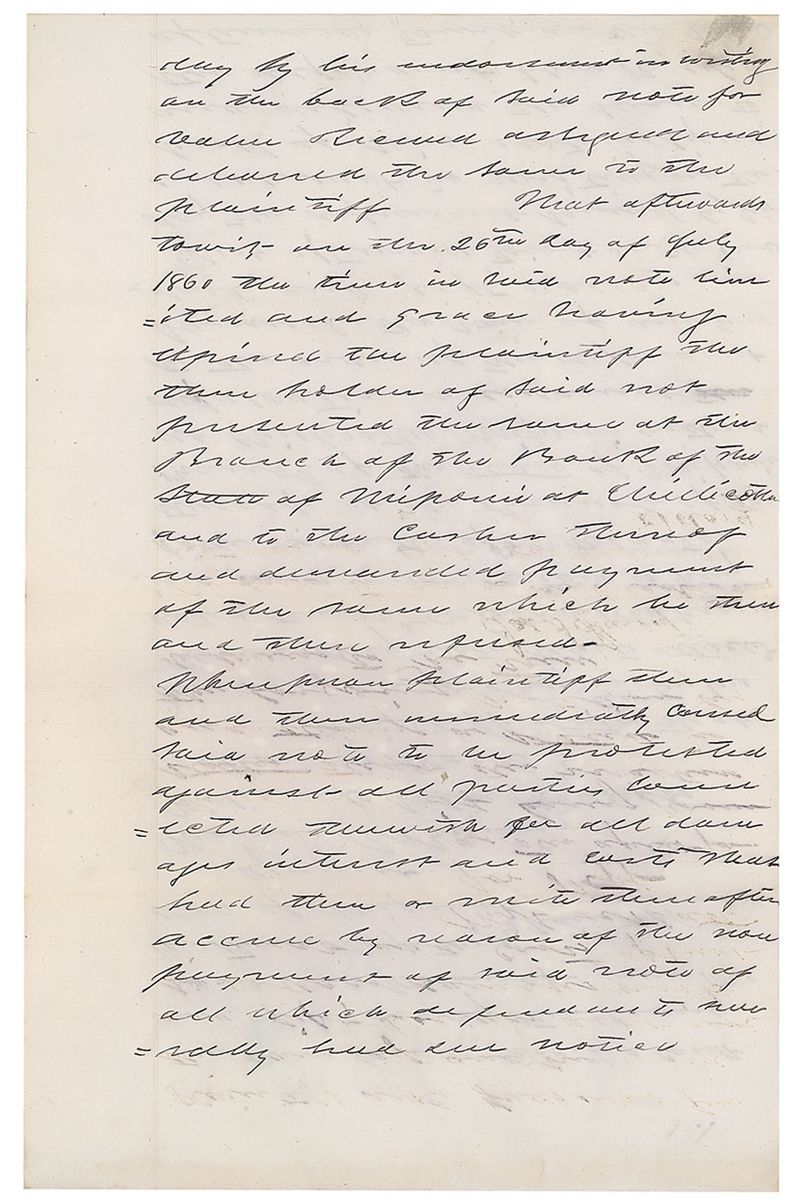 day by his endorsement in writing
on the back of said note for
value received assigned and
delivered the same to the
plaintiff That afterwards
towit on the 26th day of July
1860 the time in said note lim
=ited and grace having
expired the plaintiff the
then holder of said not
presented the same at the
Branch of the Bank of the
State of Missouri at Chillicothe
and to the Casher thereof
and demanded payment
of the same which he then
and there refused-
Whereupon plaintiff then
and there immediately caused
said note to be protested
against all parties conn
=ected therewith for all dam
ages interest and costs that
had then or mite thereafter
accrue by reason of the non
payment of said note of
all which defendants seve
=rally had due notice